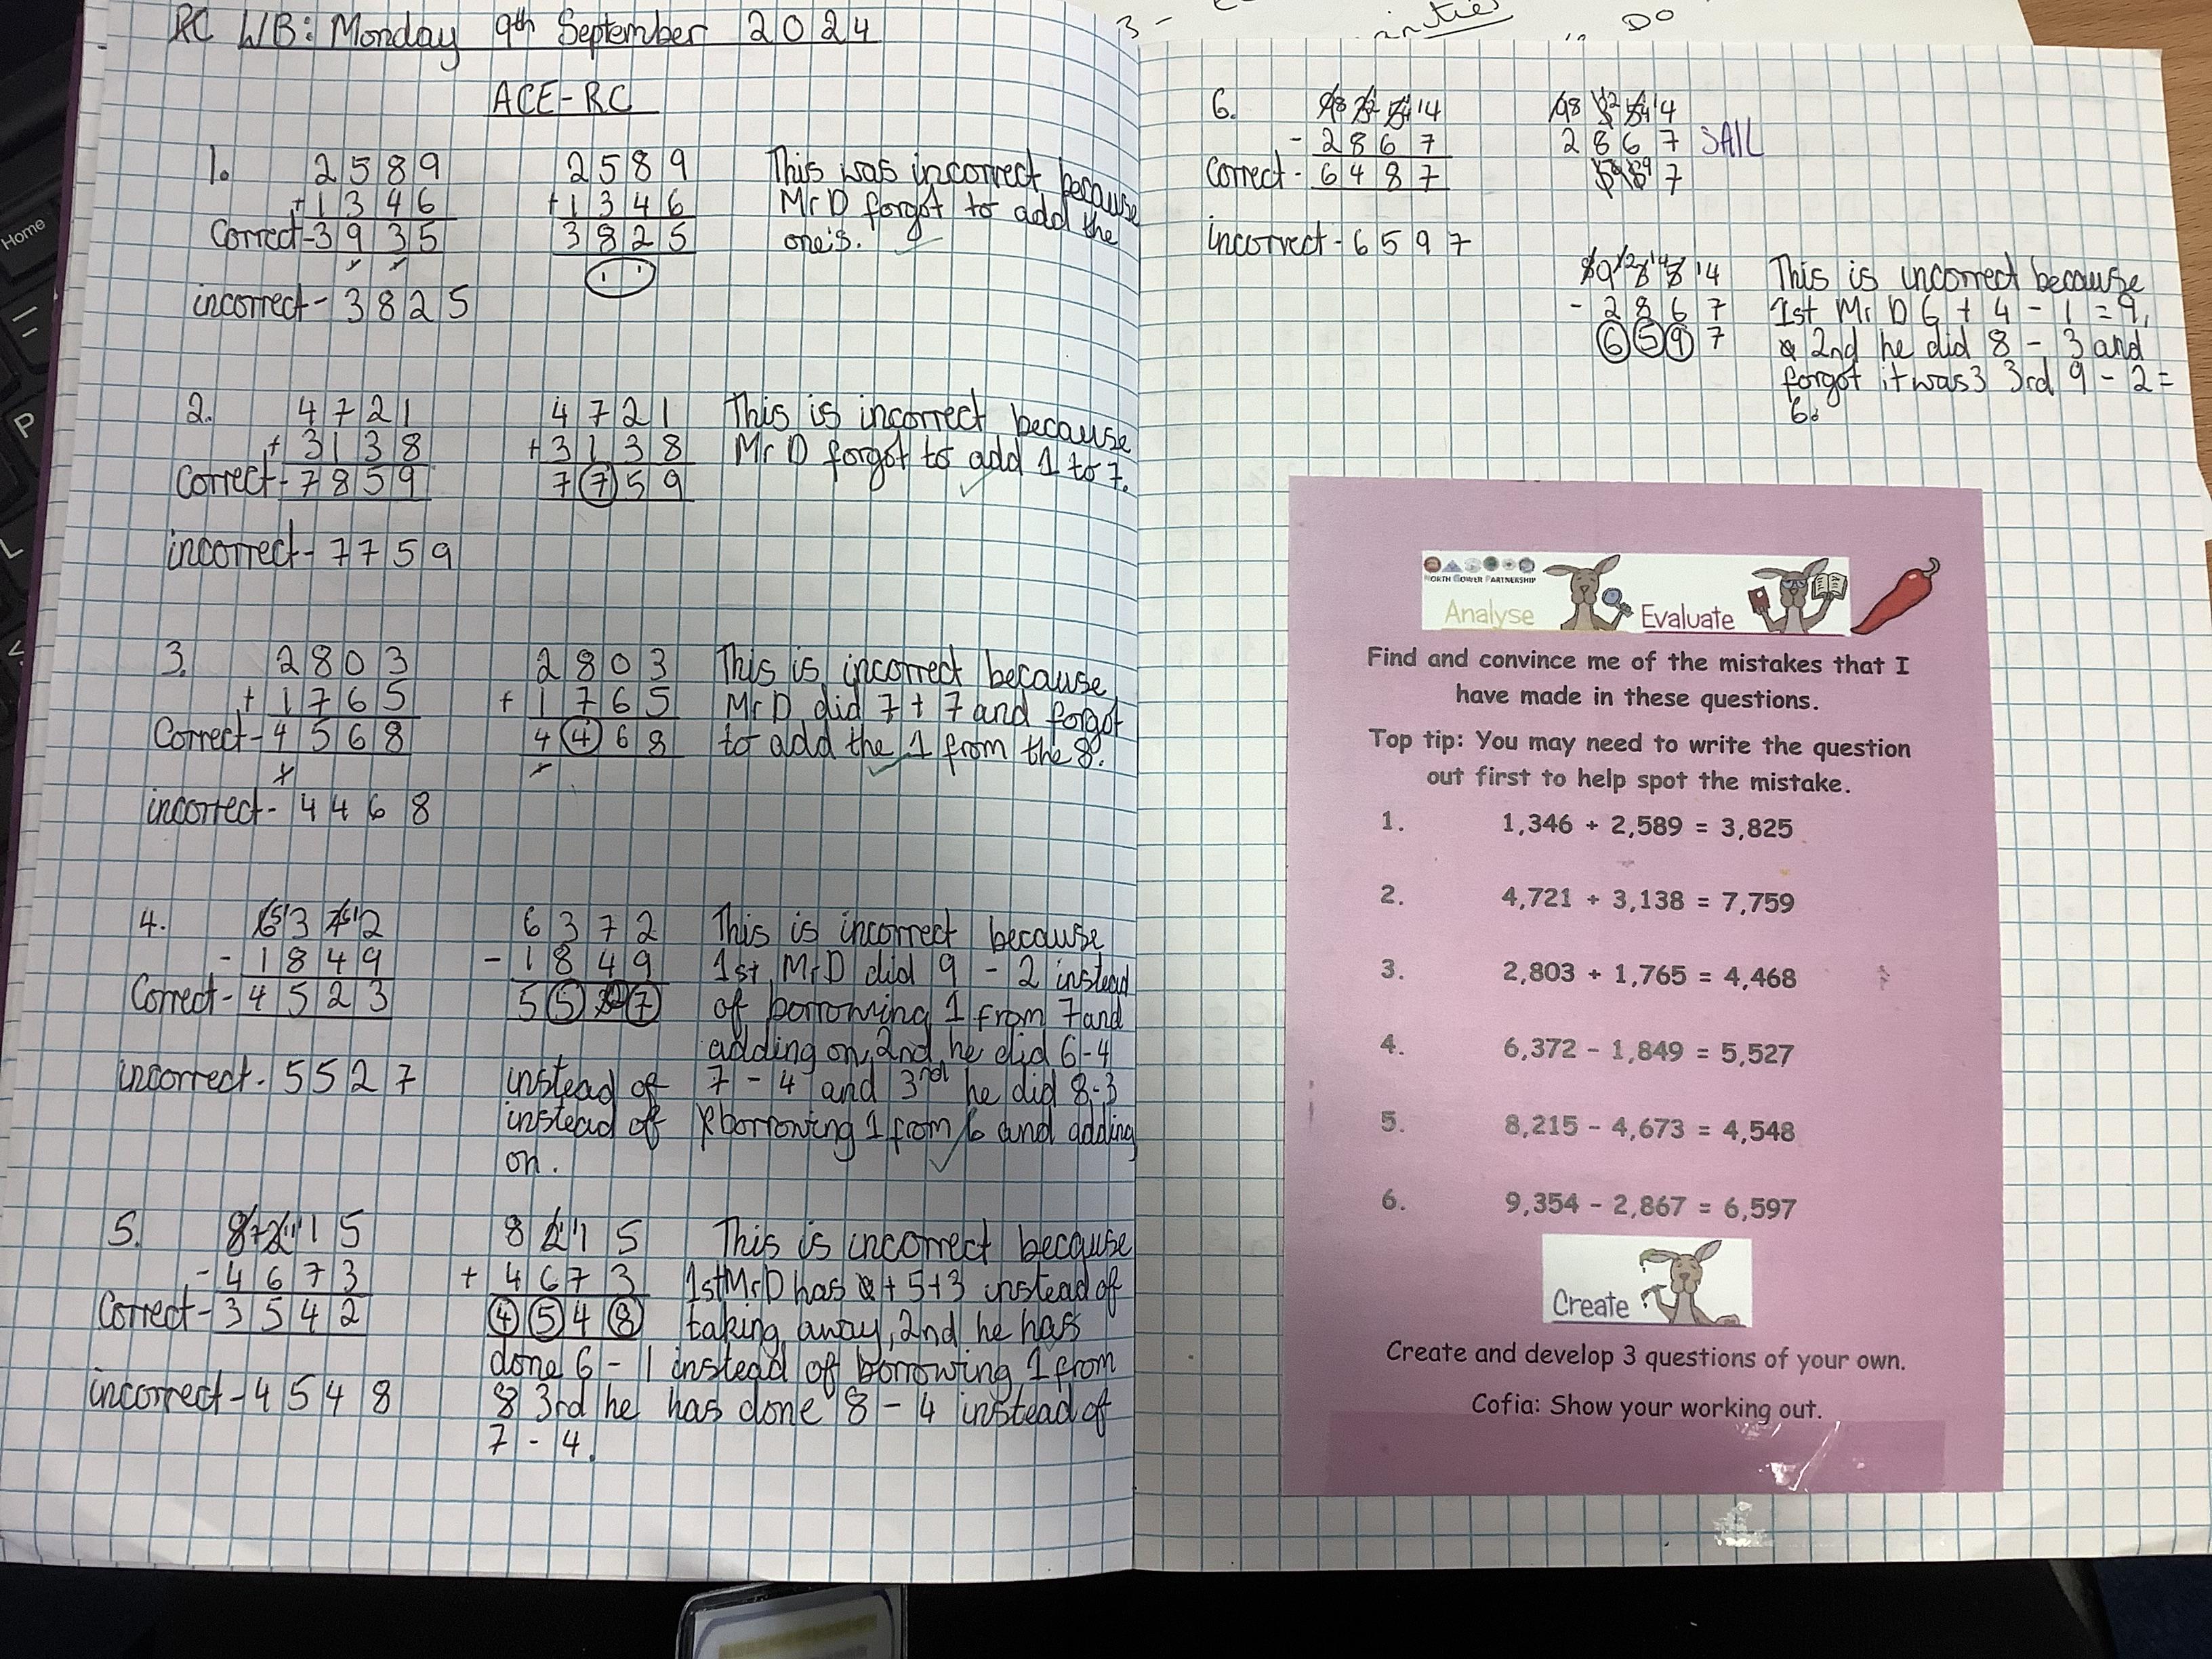 RC WB: Monday 9th September 2024
ACE-RC
1. 2589
+1346
Correct-3935
incorrect-3825
2589
+1346
3825
This was incorrect because
Mr D forgot to add the
one's.
2. 4721
+3138
Correct-7859
incorrect-7759
4721
+3138
7759
This is incorrect because
Mr D forgot to add 1 to 7.
3. 2803
+1765
Correct-4568
incorrect-4468
2803
+1765
4468
This is incorrect because
Mr D did 7+7 and forgot
to add the 1 from the 8.
4. 6372
-1849
Correct-4523
incorrect-5527
6372
-1849
5527
This is incorrect because
1st Mr D did 9-2 instead
of borrowing 1 from 7 and
adding on, 2nd he did 6-4
instead of 7-4 and 3rd he did 8-3
instead of borrowing 1 from 6 and adding
on.
5. 8215
-4673
Correct-3542
incorrect-4548
8215
+4673
4548
This is incorrect because
1st Mr D has + 5+3 instead of
taking away, 2nd he has
done 6-1 instead of borrowing 1 from
8 3rd he has done 8-4 instead of
7-4.
6.
-2867
Correct-6487
incorrect-6597
2867 SAIL
-2867
6597
This is incorrect because
1st Mr D 6+4-1=9,
2nd he did 8-3 and
forgot it was 3 3rd 9-2=
6.
NORTH GOWER PARTNERSHIP
Analyse Evaluate
Find and convince me of the mistakes that I
have made in these questions.
Top tip: You may need to write the question
out first to help spot the mistake.
1. 1,346 + 2,589 = 3,825
2. 4,721 + 3,138 = 7,759
3. 2,803 + 1,765 = 4,468
4. 6,372 - 1,849 = 5,527
5. 8,215 - 4,673 = 4,548
6. 9,354 - 2,867 = 6,597
Create
Create and develop 3 questions of your own.
Cofia: Show your working out.
Home
P
L